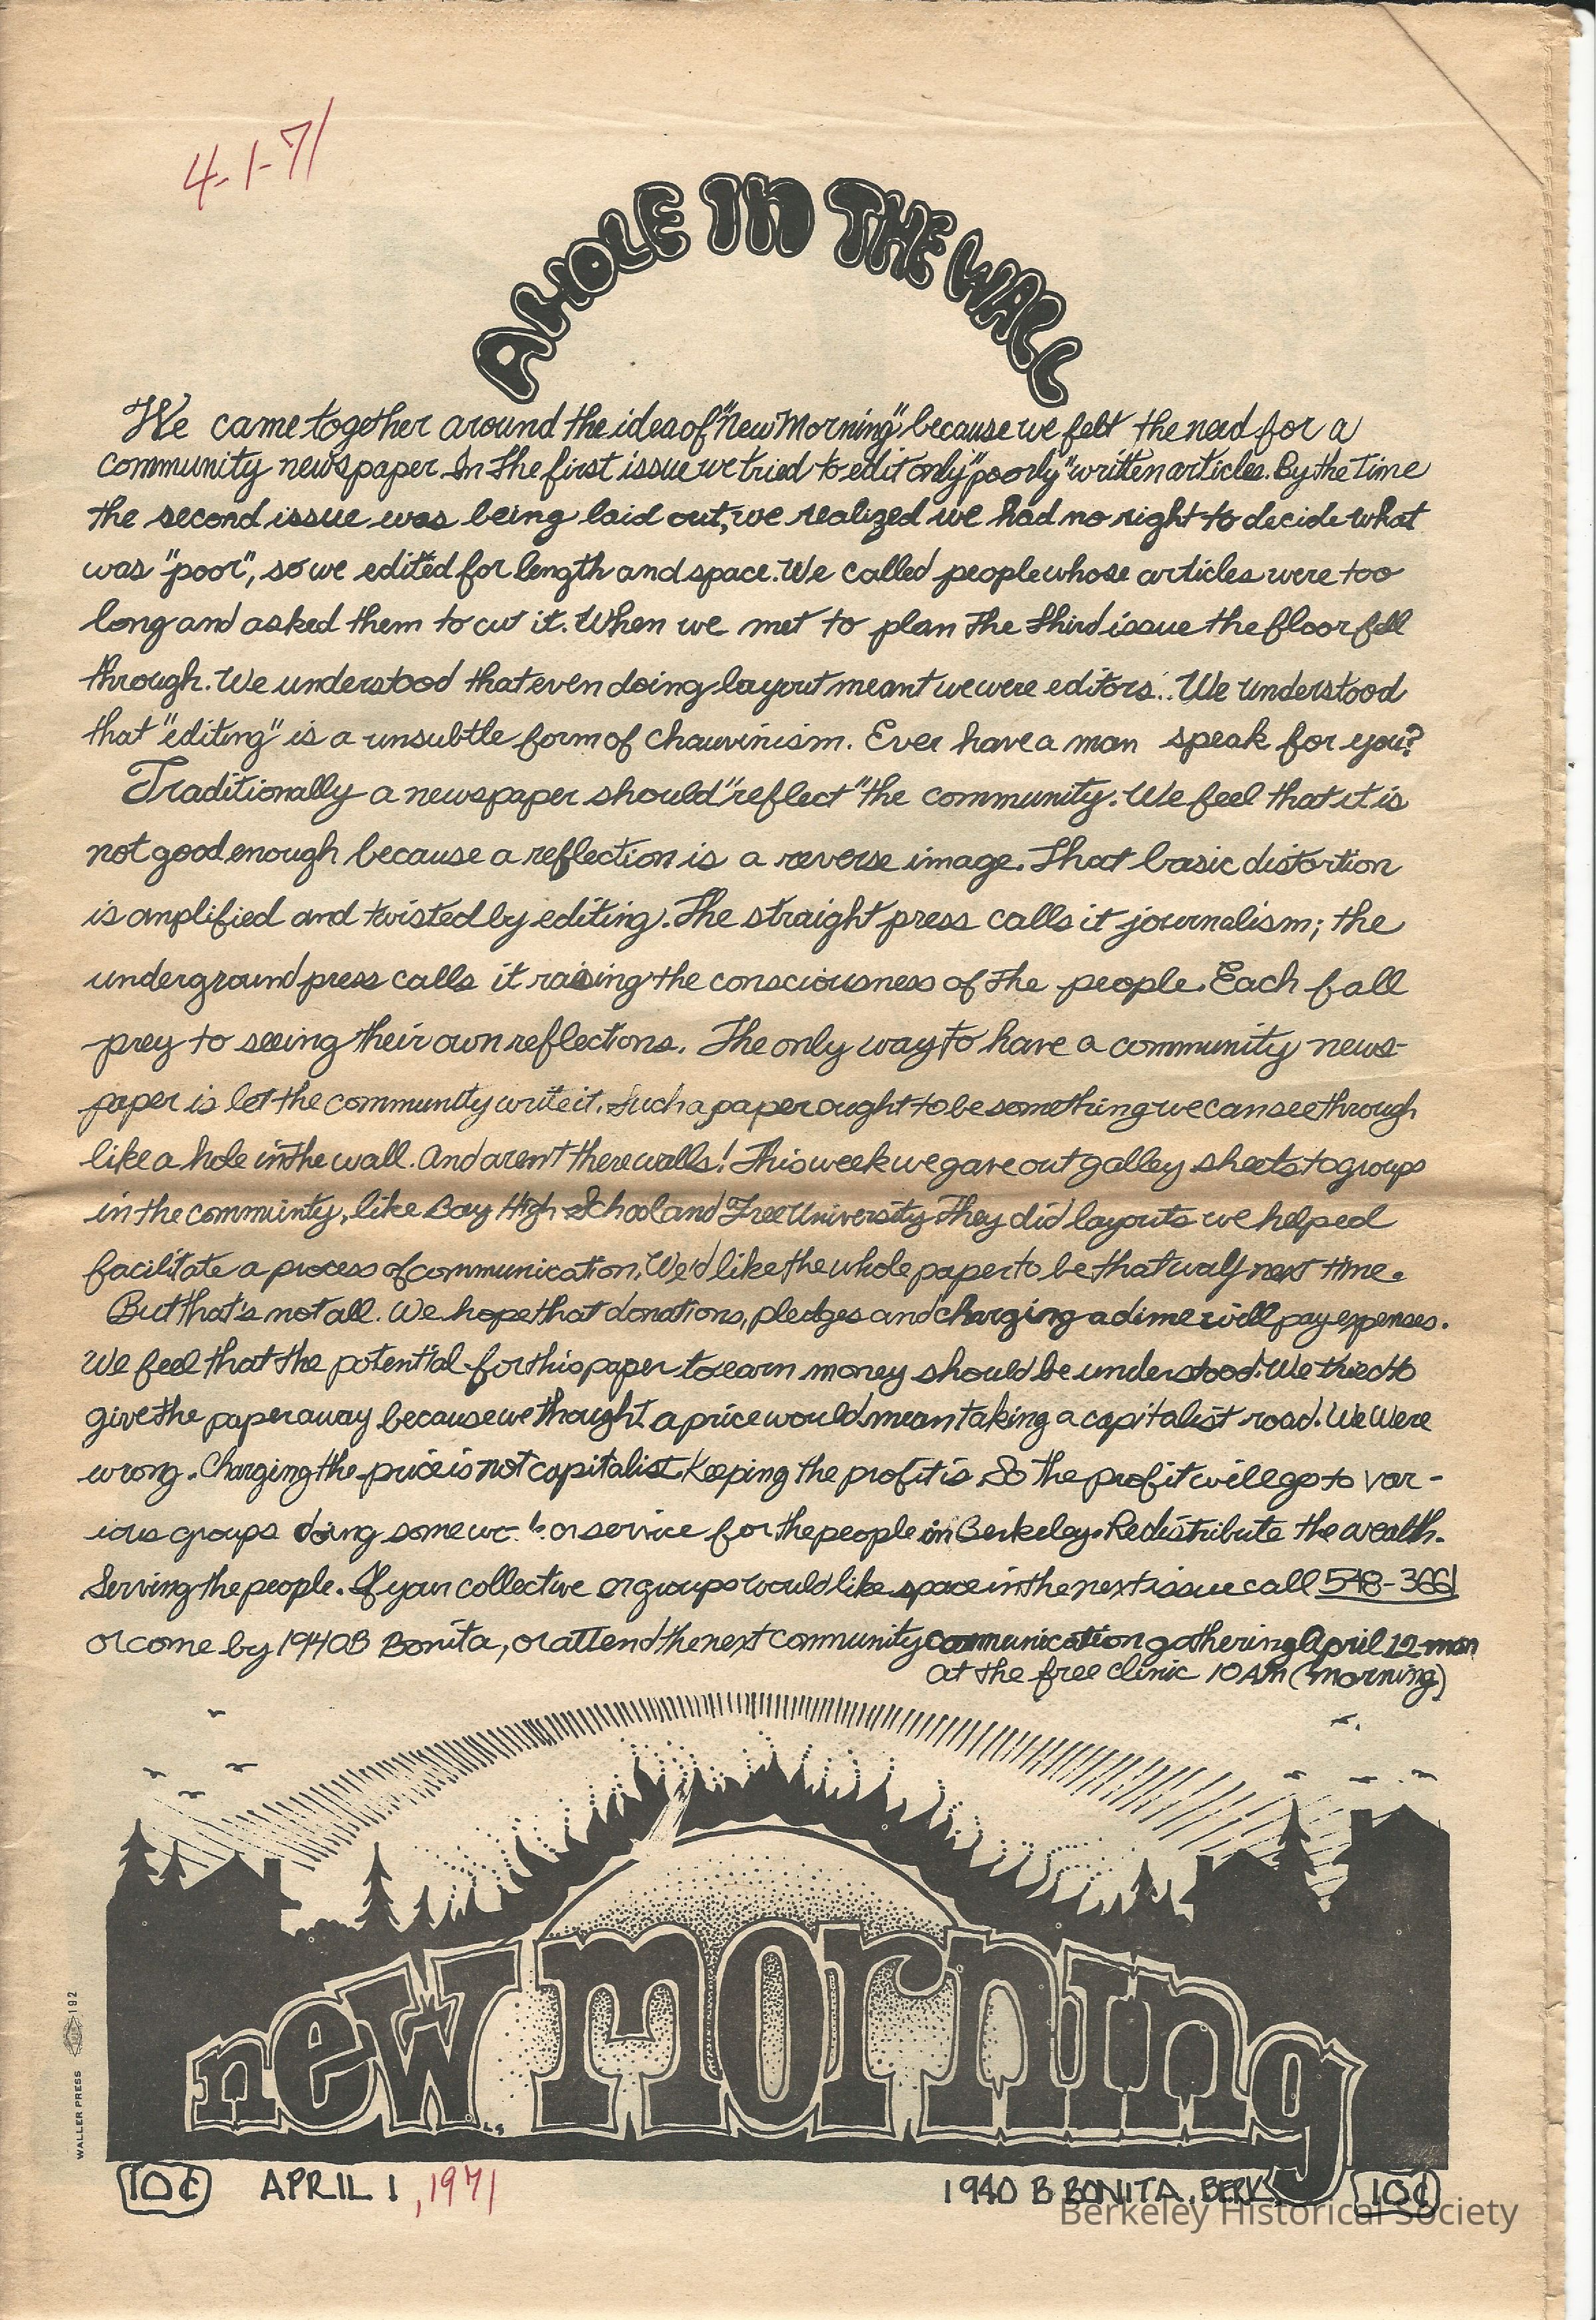 4-1-71
A HOLE IN THE WALL
We came together around the idea of "New Morning" because we felt the need for a
community newspaper. In the first issue we tried to edit only "poorly" written articles. By the time
the second issue was being laid out, we realized we had no right to decide what
was "poor", so we edited for length and space. We called people whose articles were too
long and asked them to cut it. When we met to plan the third issue the floor fell
through. We understood that even doing layout meant we were editors.. We understood
that "editing" is a unsubtle form of chauvinism. Ever have a man speak for you?
Traditionally a newspaper should "reflect" the community. We feel that it is
not good enough because a reflection is a reverse image. That basic distortion
is amplified and twisted by editing. The straight press calls it journalism; the
underground press calls it raising the consciousness of the people. Each fall
prey to seeing their own reflections. The only way to have a community news-
paper is let the community write it. Such a paper ought to be something we can see through
like a hole in the wall. And aren't there walls! This week we gave out galley sheets to groups
in the community, like Bay High School and Free University. They did layouts we helped
facilitate a process of communication. We'd like the whole paper to be that way next time.
But that's not all. We hope that donations, pledges and charging a dime will pay expenses.
We feel that the potential for this paper to earn money should be understood. We tried to
give the paper away because we thought a price would mean taking a capitalist road. We were
wrong. Charging the price is not capitalist. Keeping the profit is. So the profit will go to var-
ious groups doing some or service for the people in Berkeley. Redistribute the wealth.
Serving the people. If your collective or groups would like space in the next issue call 548-3661
or come by 1940B Bonita, or attend the next community communication gathering April 12 mon
at the free clinic 10 AM (morning)
new morning
WALLER PRESS 192
10¢ APRIL 1, 1971 1940 B BONITA, BERK. 10¢
Berkeley Historical Society